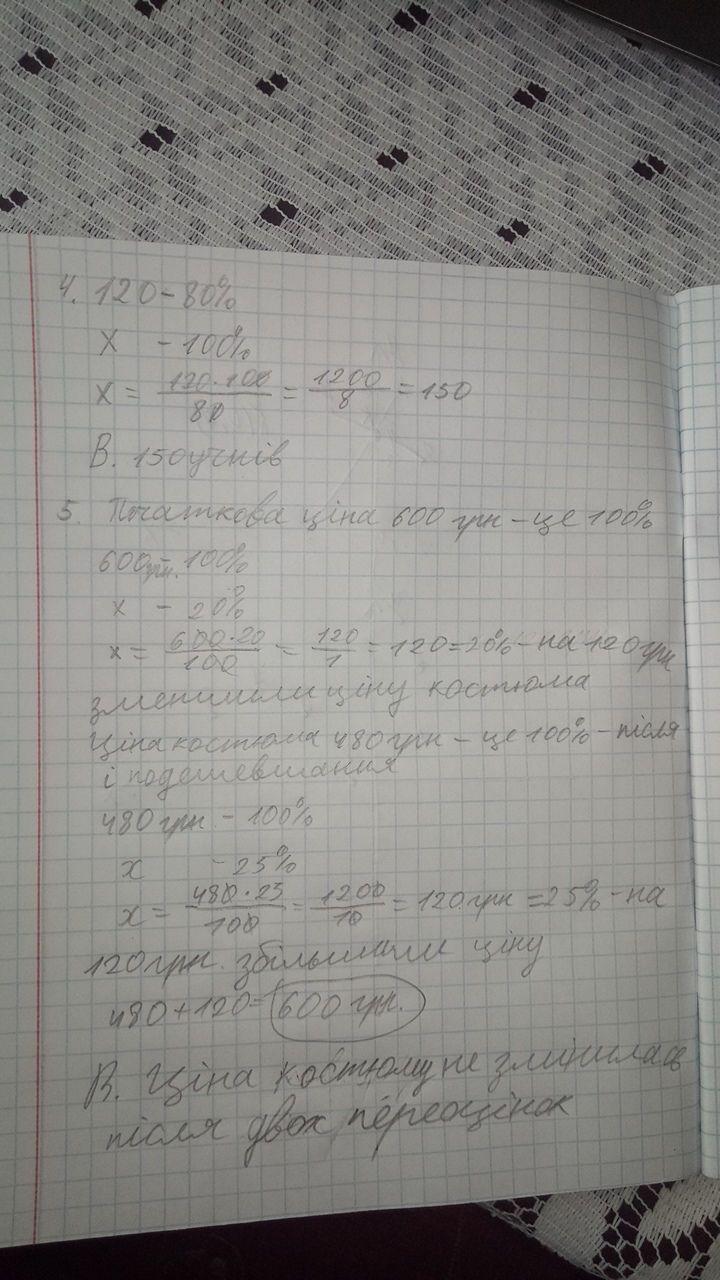 4. 120 - 80%
X - 100%
X = 120·100/80 = 1200/8 = 150
В. 150 учнів
5. Початкова ціна 600 грн - це 100%
600 грн. - 100%
x - 20%
x = 600·20/100 = 120/1 = 120 = 20% - на 120 грн
зменшили ціну костюма
Ціна костюма 480 грн - це 100% - після
і подешевшання
480 грн - 100%
x - 25%
x = 480·25/100 = 1200/10 = 120 грн = 25% - на
120 грн. збільшили ціну
480 + 120 = 600 грн.
В. Ціна костюму не змінилась
після двох переоцінок